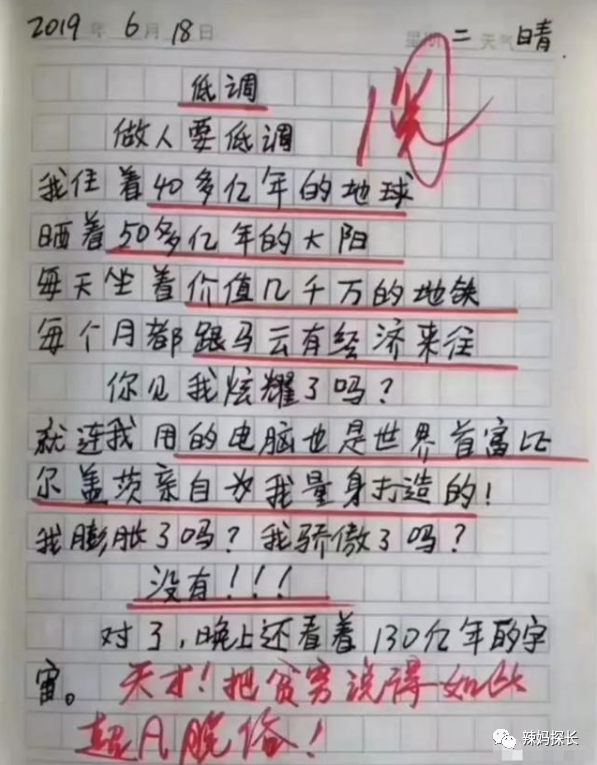 2019 年 6 月 18 日 星期 二 天气 晴.
低调
阅
做人要低调
我住着40多亿年的地球
晒着50多亿年的太阳
每天坐着价值几千万的地铁
每个月都跟马云有经济来往
你见我炫耀了吗？
就连我用的电脑也是世界首富比
尔盖茨亲自为我量身打造的！
我膨胀了吗？我骄傲了吗？
没有！！！
对了，晚上还看着130亿年的宇
宙。 天才！把贫穷说得如此
超凡脱俗！
辣妈探长